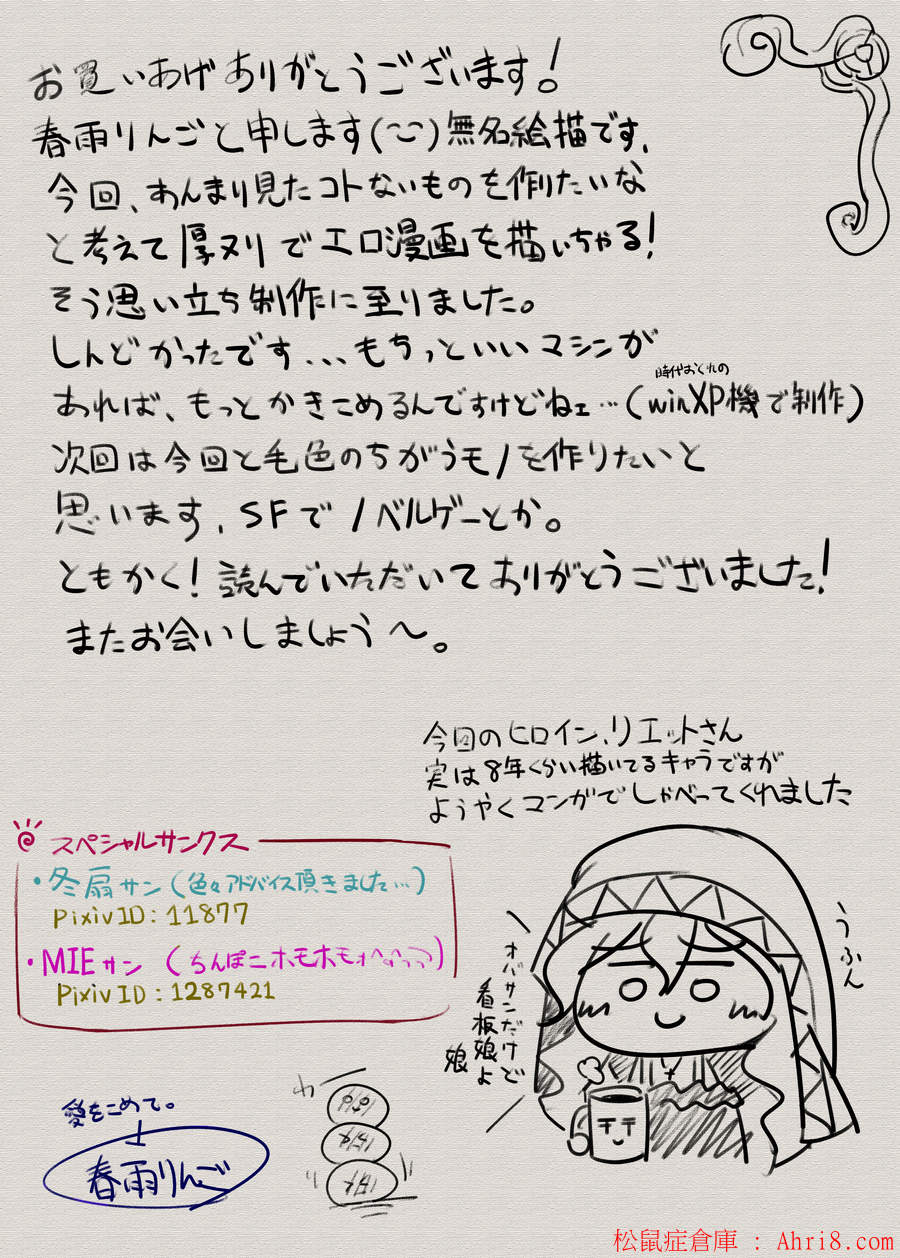 お買いあげありがとうございます!
春雨りんごと申します(~~)無名絵描です、
今回、あんまり見たコトないものを作りたいな
と考えて厚ヌリでエロ漫画を描いちゃる!
そう思い立ち制作に至りました。
しんどかったです...もちっといいマシンが
時代おくれの
あれば、もっとかきこめるんですけどねェ…(winXP機で制作)
次回は今回と毛色のちがうモノを作りたいと
思います、SFでノベルゲーとか。
ともかく!読んでいただいてありがとうございました!
またお会いしましょう~。
今回のヒロイン、リエットさん
実は8年くらい描いてるキャラですが
ようやくマンガでしゃべってくれました
スペシャルサンクス
・冬扇サン(色々アドバイス頂きました…)
PixivID:11877
・MIEサン(ちんぽニホモホモ
PixivID:1287421
うふん
オバサンだけど
看板娘よ
娘
愛をこめて。
春雨りんご
松鼠症倉庫 : Ahri8.com